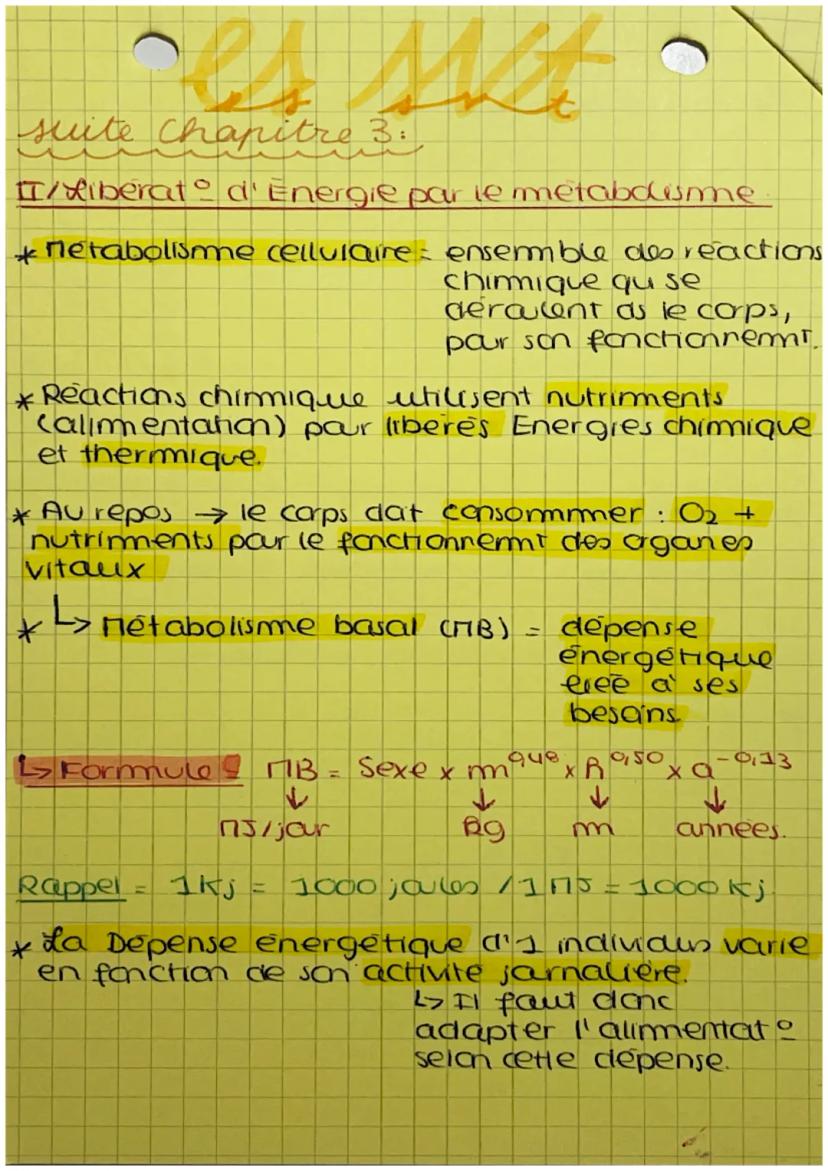 es svt
suite Chapitre 3:
II/Libérat° d'Énergie par le métabolisme.
* Métabolisme cellulaire = ensemble des réactions
chimique qui se
déroulent ds le corps,
pour son fonctionnemt.
* Réactions chimique utilisent nutriments
(alimentation) pour libérés Energies chimique
et thermique.
* Au repos → le corps doit consommer : O₂ +
nutriments pour le fonctionnemt des organes
vitaux
* ↳ Métabolisme basal (MB) = dépense
énergétique
liée à ses
besoins.
↳ Formule : MB = Sexe x m^0,48 x h^0,50 x a^-0,13
↓ ↓ ↓ ↓
MJ/jour kg m années.
Rappel = 1Kj = 1000 joules / 1 MJ = 1000 Kj.
* La Dépense énergétique d'1 individus varie
en fonction de son activité journalière.
↳ Il faut donc
adapter l'alimentat°
selon cette dépense.